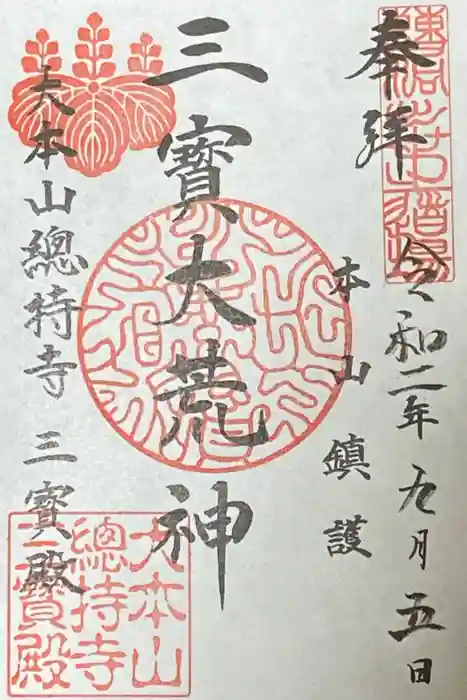 奉拝
令和二年九月五日
本山鎮護
三寶大荒神
大本山總持寺 三寶殿
大本山
總持寺
三寶殿